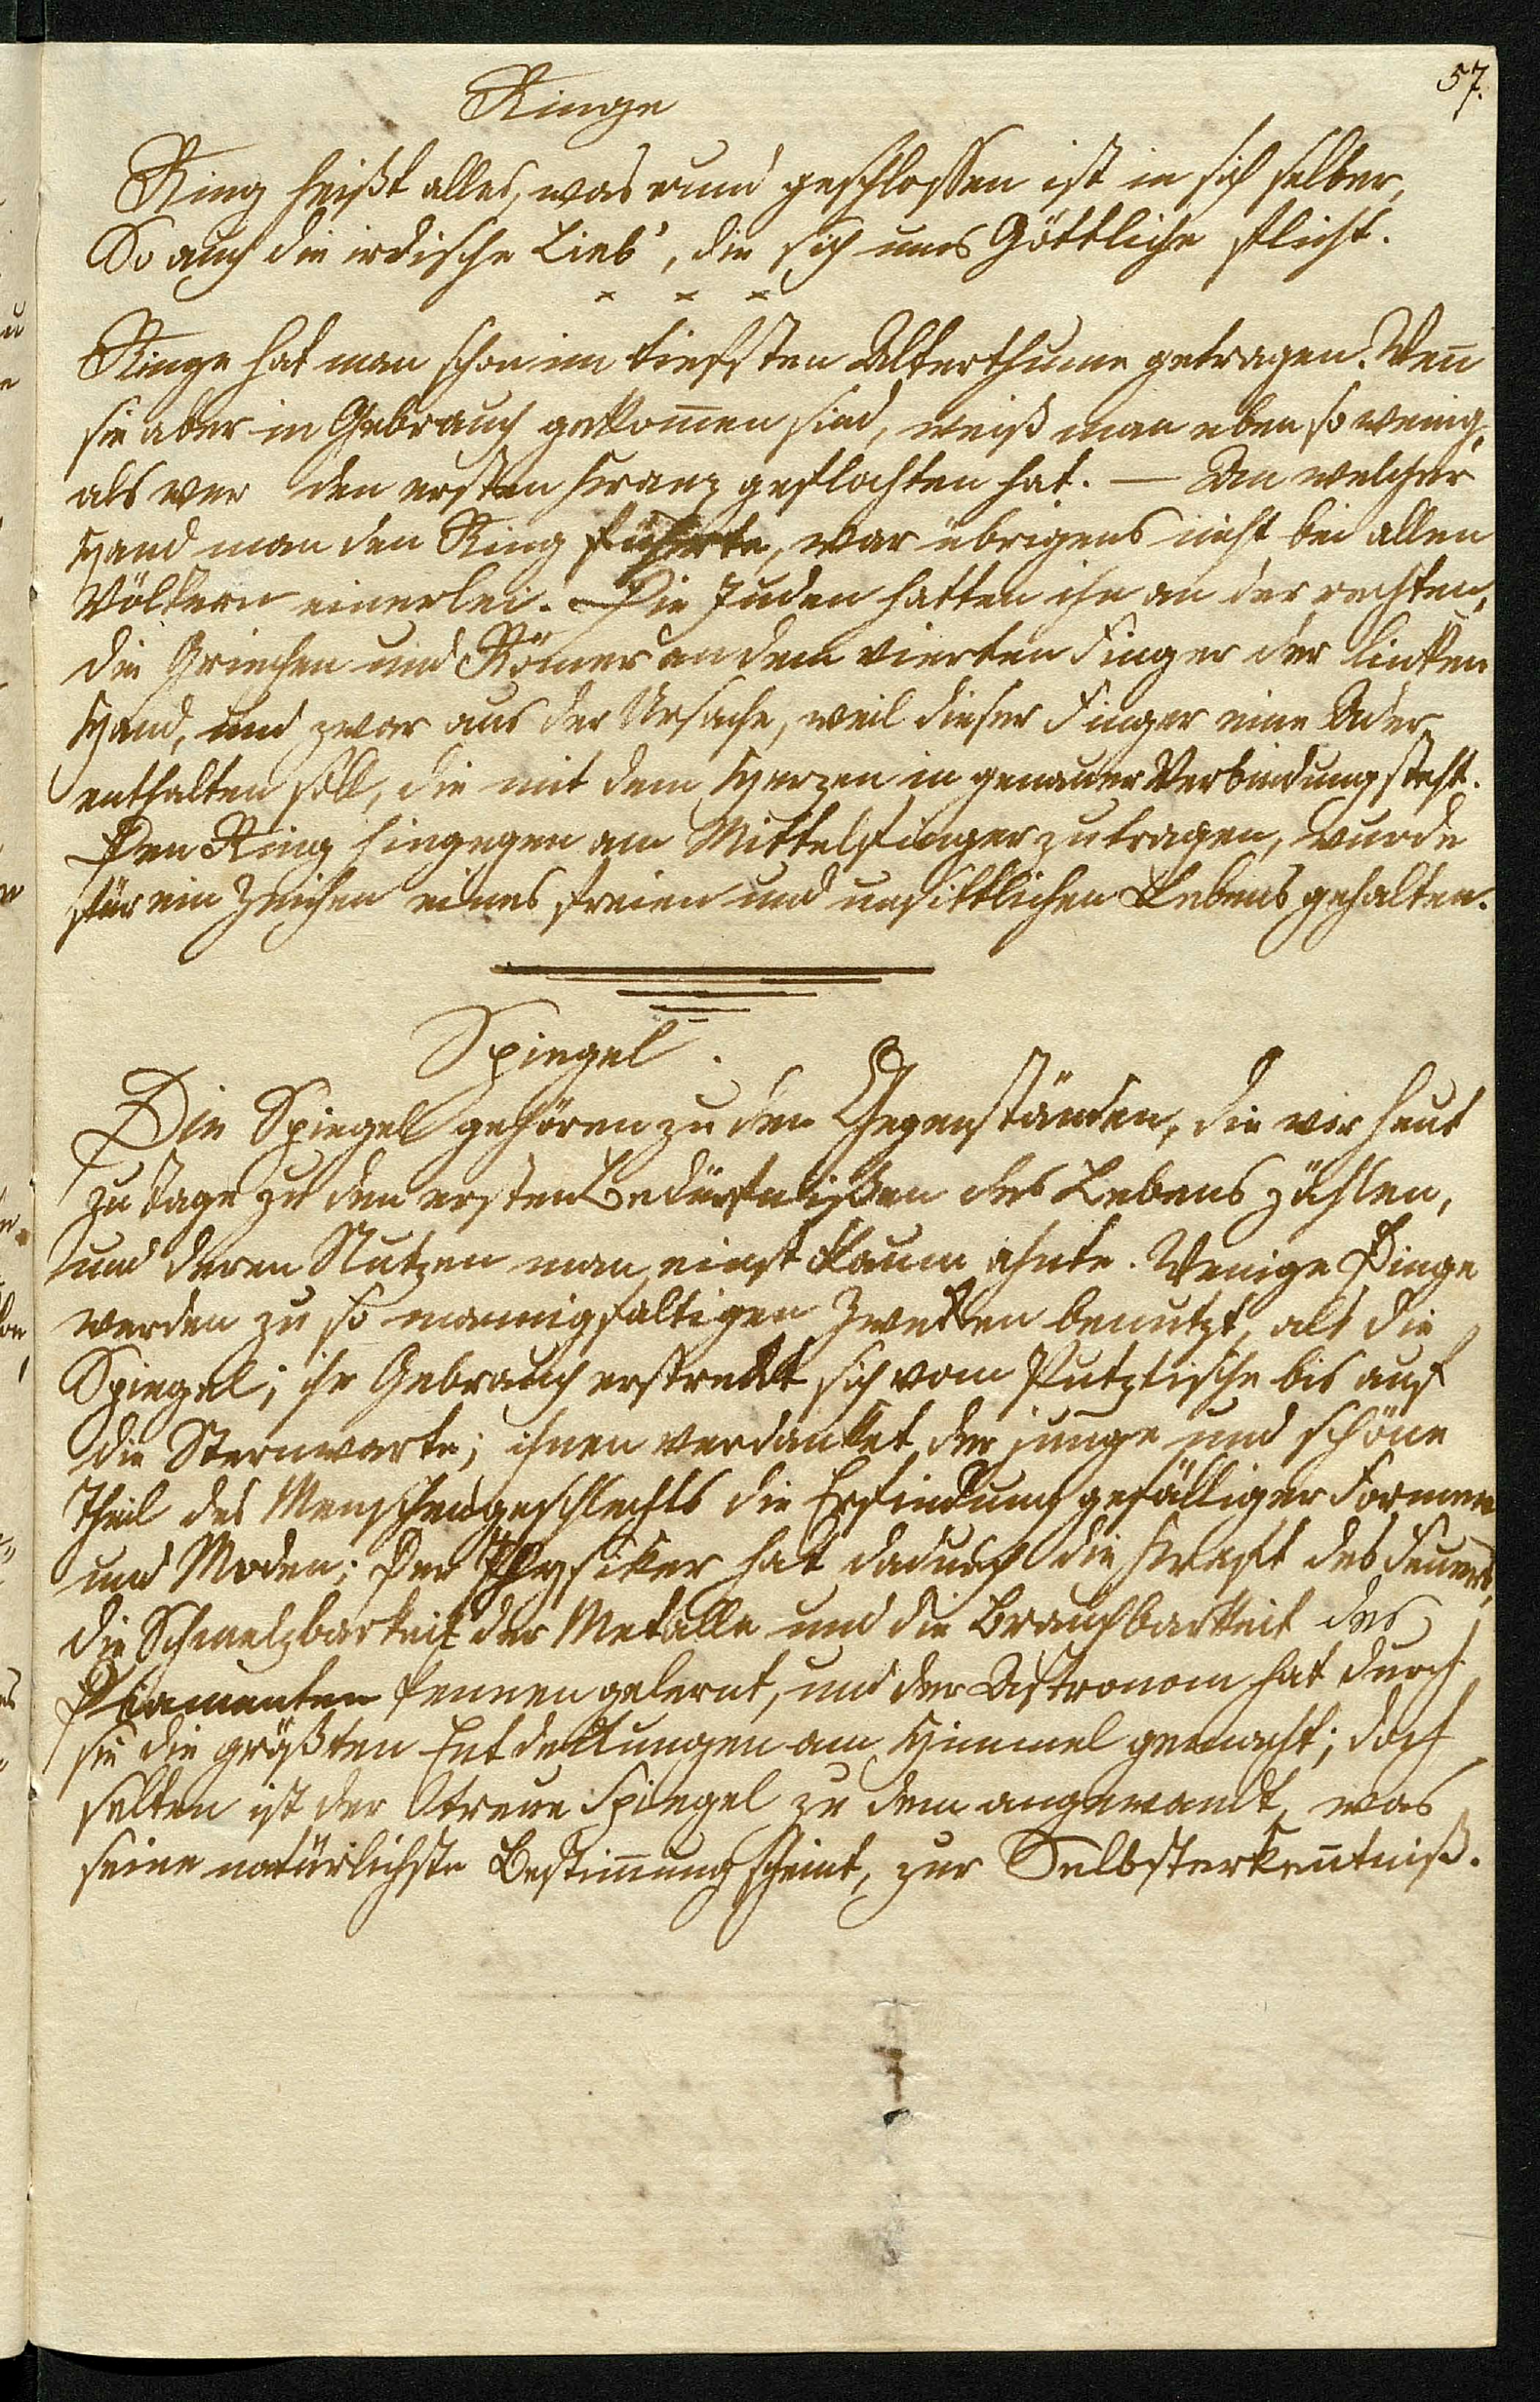 57.
Ringe
Ring heißt alles, was rund geschlossen ist in sich selber,
So auch die irdische Lieb', die sich ums Göttliche flicht.
× × ×
Ringe hat man schon im tiefsten Alterthume getragen. Wen̄
sie aber in Gebrauch gekom̄en sind, weiß man eben so wenig,
als wer den ersten Kranz geflochten hat. — An welcher
Hand man den Ring führte, war übrigens nicht bei allen
Völkern einerlei. Die Juden hatten ihn an der rechten,
die Griechen und Römer an dem vierten Finger der linken
Hand, und zwar aus der Ursache, weil dieser Finger eine Ader
enthalten soll, die mit dem Herzen in genauer Verbindung steht.
Den Ring hingegen am Mittelfinger zu tragen, wurde
für ein Zeichen eines freien und unsittlichen Lebens gehalten.
Spiegel.
Die Spiegel gehören zu den Gegenständen, die wir heut
zu Tage zu den ersten Bedürfnißen des Lebens zählen,
und deren Nutzen man einst kaum ahnte. Wenige Dinge
werden zu so mannigfaltigen Zwekken benutzt, als die
Spiegel; ihr Gebrauch erstrekkt sich vom Putztische bis auf
die Sternwarte; ihnen verdanket der junge und schöne
Theil des Menschengeschlechts die Erfindung gefälliger Formen
und Moden; Der Physiker hat dadurch die Kraft des Feuers,
die Schmelzbarkeit der Metalle und die Brauchbarkeit des
Diamanten kennen gelernt, und der Astronom hat durch
sie die größten Entdekkungen am Himmel gemacht; doch
selten ist der treue Spiegel zu dem angewandt, was
seine natürlichste Bestim̄ung scheint, zur Selbsterken̄tniß.